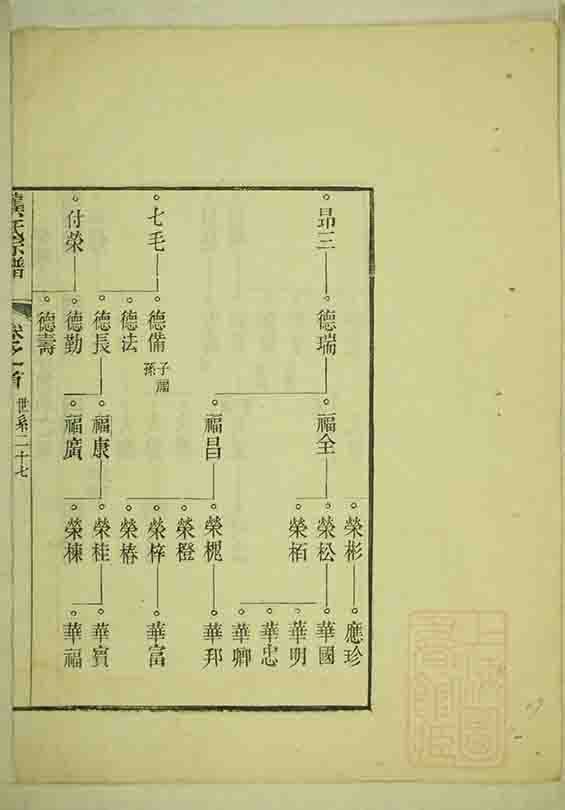 昂三
七毛
付榮
德瑞
德備
子孫
德法
德長
德勤
德壽
福全
福昌
福康
福廣
榮彬
榮松
榮栢
榮槐
榮橙
榮梓
榮椿
榮桂
榮棟
應珍
華國
華明
華忠
華卿
華邦
華富
華賓
華福
氏宗譜
世系二十七